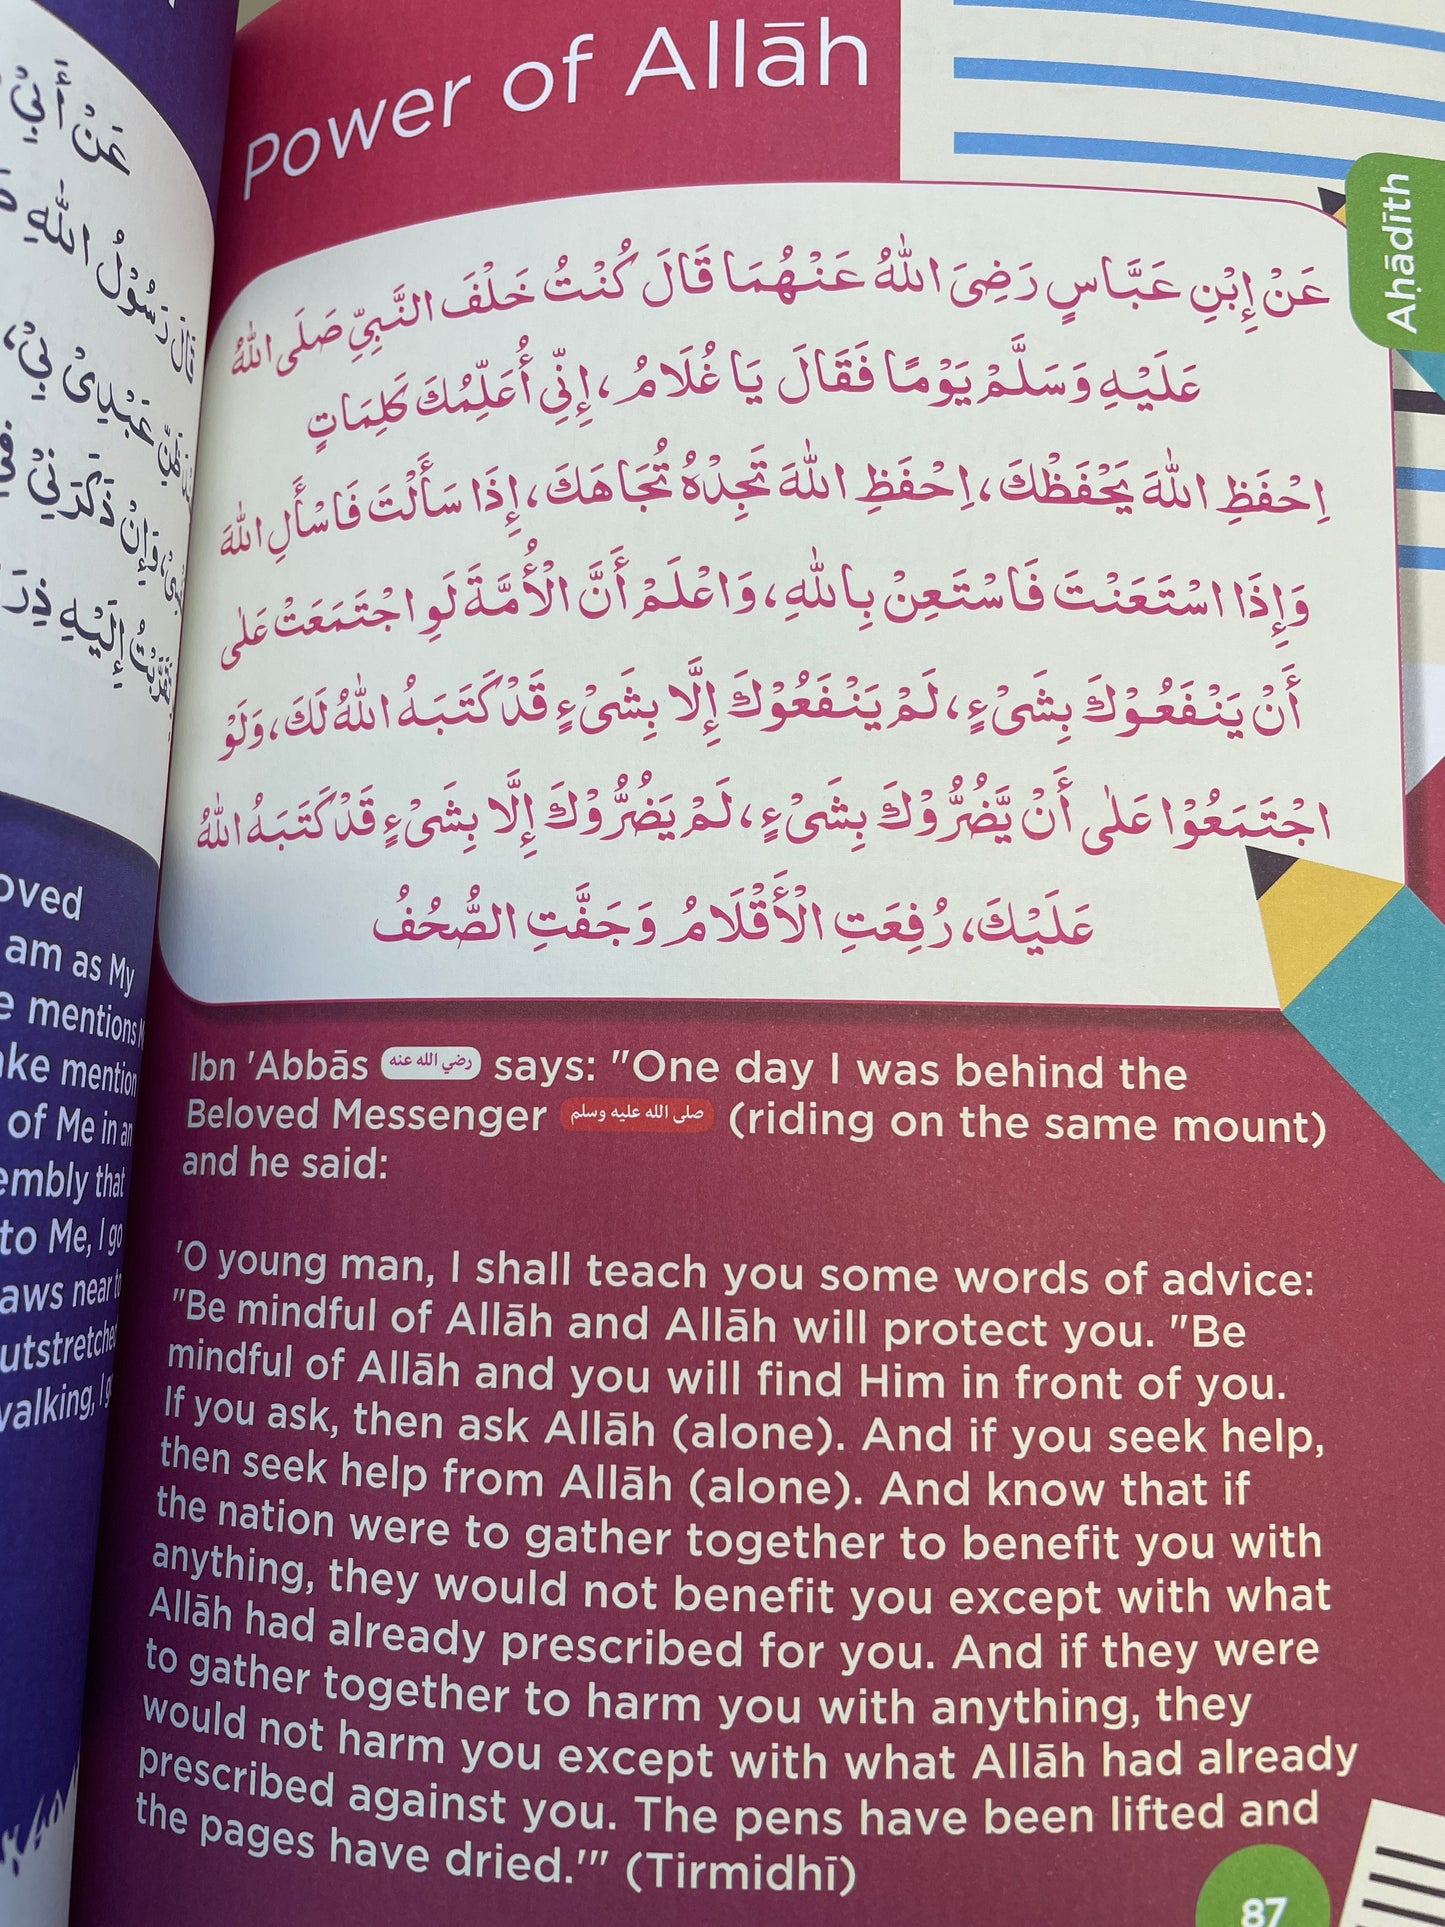 Power of Allāh
Aḥādīth
عَنْ إِبْنِ عَبَّاسٍ رَضِىَ اللهُ عَنْهُمَا قَالَ كُنْتُ خَلْفَ النَّبِيِّ صَلَى اللهُ
عَلَيْهِ وَسَلَّمْ يَوْمًا فَقَالَ يَا غُلَامُ، إِنِّي أُعَلِّمُكَ كَلِمَاتٍ
اِحْفَظِ اللهَ يَحْفَظْكَ، اِحْفَظِ اللهَ تَجِدْهُ تُجَاهَكَ، إِذَا سَأَلْتَ فَاسْأَلِ اللهَ
وَإِذَا اسْتَعَنْتَ فَاسْتَعِنْ بِاللهِ، وَاعْلَمْ أَنَّ الْأُمَّةَ لَوِ اجْتَمَعَتْ عَلٰى
أَنْ يَنْفَعُوْكَ بِشَىْءٍ، لَمْ يَنْفَعُوْكَ إِلَّا بِشَىْءٍ قَدْ كَتَبَهُ اللهُ لَكَ، وَلَوْ
اجْتَمَعُوْا عَلٰى أَنْ يَّضُرُّوْكَ بِشَىْءٍ، لَمْ يَضُرُّوْكَ إِلَّا بِشَىْءٍ قَدْ كَتَبَهُ اللهُ
عَلَيْكَ، رُفِعَتِ الْأَقْلَامُ وَجَفَّتِ الصُّحُفُ
Ibn 'Abbās رضي الله عنه says: "One day I was behind the
Beloved Messenger صلى الله عليه وسلم (riding on the same mount)
and he said:
'O young man, I shall teach you some words of advice:
"Be mindful of Allāh and Allāh will protect you. "Be
mindful of Allāh and you will find Him in front of you.
If you ask, then ask Allāh (alone). And if you seek help,
then seek help from Allāh (alone). And know that if
the nation were to gather together to benefit you with
anything, they would not benefit you except with what
Allāh had already prescribed for you. And if they were
to gather together to harm you with anything, they
would not harm you except with what Allāh had already
prescribed against you. The pens have been lifted and
the pages have dried.'" (Tirmidhī)
87
عَنْ أَبِيْ
قَالَ رَسُوْلُ اللهِ
عَبْدِىْ بِيْ،
وَإِنْ ذَكَرَنِيْ فِيْ
إِلَيْهِ
am as My
mentions
mention
of Me in an
that
to Me, I go
near to
walking, I